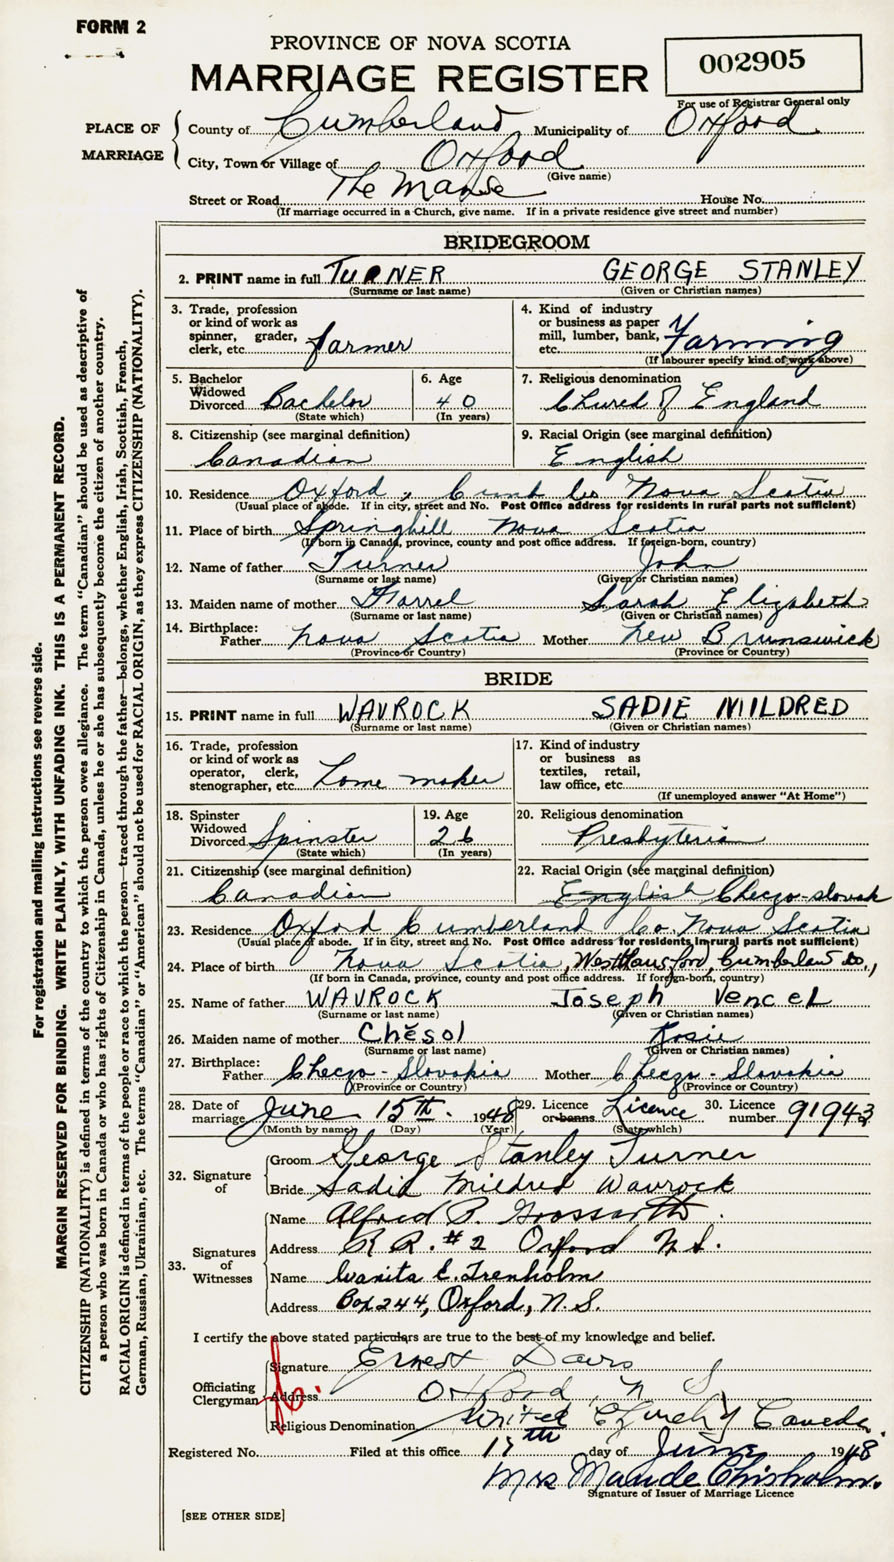 FORM 2
PROVINCE OF NOVA SCOTIA
MARRIAGE REGISTER
002905
For use of Registrar General only
PLACE OF MARRIAGE
County of Cumberland Municipality of Oxford
City, Town or Village of Oxford
(Give name)
Street or Road The Manse House No.
(If marriage occurred in a Church, give name. If in a private residence give street and number)
BRIDEGROOM
2. PRINT name in full TURNER GEORGE STANLEY
(Surname or last name) (Given or Christian names)
3. Trade, profession or kind of work as spinner, grader, clerk, etc. farmer
4. Kind of industry or business as paper mill, lumber, bank, etc. Farming
(If labourer specify kind of work above)
5. Bachelor Widowed Divorced Bachelor
(State which)
6. Age 40
(In years)
7. Religious denomination Church of England
8. Citizenship (see marginal definition)
Canadian
9. Racial Origin (see marginal definition)
English
10. Residence Oxford, Cumb Co Nova Scotia
(Usual place of abode. If in city, street and No. Post Office address for residents in rural parts not sufficient)
11. Place of birth Springhill Nova Scotia
(If born in Canada, province, county and post office address. If foreign-born, country)
12. Name of father Turner John
(Surname or last name) (Given or Christian names)
13. Maiden name of mother Harrel Sarah Elizabeth
(Surname or last name) (Given or Christian names)
14. Birthplace: Father Nova Scotia Mother New Brunswick
(Province or Country) (Province or Country)
BRIDE
15. PRINT name in full WAVROCK SADIE MILDRED
(Surname or last name) (Given or Christian names)
16. Trade, profession or kind of work as operator, clerk, stenographer, etc. Home maker
17. Kind of industry or business as textiles, retail, law office, etc.
(If unemployed answer "At Home")
18. Spinster Widowed Divorced Spinster
(State which)
19. Age 26
(In years)
20. Religious denomination
Presbyterian
21. Citizenship (see marginal definition)
Canadian
22. Racial Origin (see marginal definition)
English Checzo-slovak
23. Residence Oxford Cumberland Co. Nova Scotia
(Usual place of abode. If in city, street and No. Post Office address for residents in rural parts not sufficient)
24. Place of birth Nova Scotia, West Hansford, Cumberland Co.,
(If born in Canada, province, county and post office address. If foreign-born, country)
25. Name of father WAVROCK Joseph Vencel
(Surname or last name) (Given or Christian names)
26. Maiden name of mother Chĕsol Rosie
(Surname or last name) (Given or Christian names)
27. Birthplace: Father Checzo-Slovakia Mother Checzo-Slovakia
(Province or Country) (Province or Country)
28. Date of marriage June 15th. 1948
(Month by name) (Day) (Year)
29. Licence or banns Licence
(State which)
30. Licence number 91943
32. Signature of
Groom George Stanley Turner
Bride Sadie Mildred Wavrock
33. Signatures of Witnesses
Name Alfred P. Grossarth.
Address R R. #2 Oxford N.S.
Name Wanita E. Trenholm
Address Box 244, Oxford, N.S.
I certify the above stated particulars are true to the best of my knowledge and belief.
Officiating Clergyman
Signature Ernest Davis
Address Oxford, N S
Religious Denomination United Church of Canada.
Registered No. Filed at this office 17th day of June 1948.
Mrs Maude Chisholm.
Signature of Issuer of Marriage Licence
[SEE OTHER SIDE]
For registration and mailing instructions see reverse side.
MARGIN RESERVED FOR BINDING. WRITE PLAINLY, WITH UNFADING INK. THIS IS A PERMANENT RECORD.
CITIZENSHIP (NATIONALITY) is defined in terms of the country to which the person owes allegiance. The term "Canadian" should be used as descriptive of
a person who was born in Canada or who has rights of Citizenship in Canada, unless he or she has subsequently become the citizen of another country.
RACIAL ORIGIN is defined in terms of the people or race to which the person—traced through the father—belongs, whether English, Irish, Scottish, French,
German, Russian, Ukrainian, etc. The terms "Canadian" or "American" should not be used for RACIAL ORIGIN, as they express CITIZENSHIP (NATIONALITY).